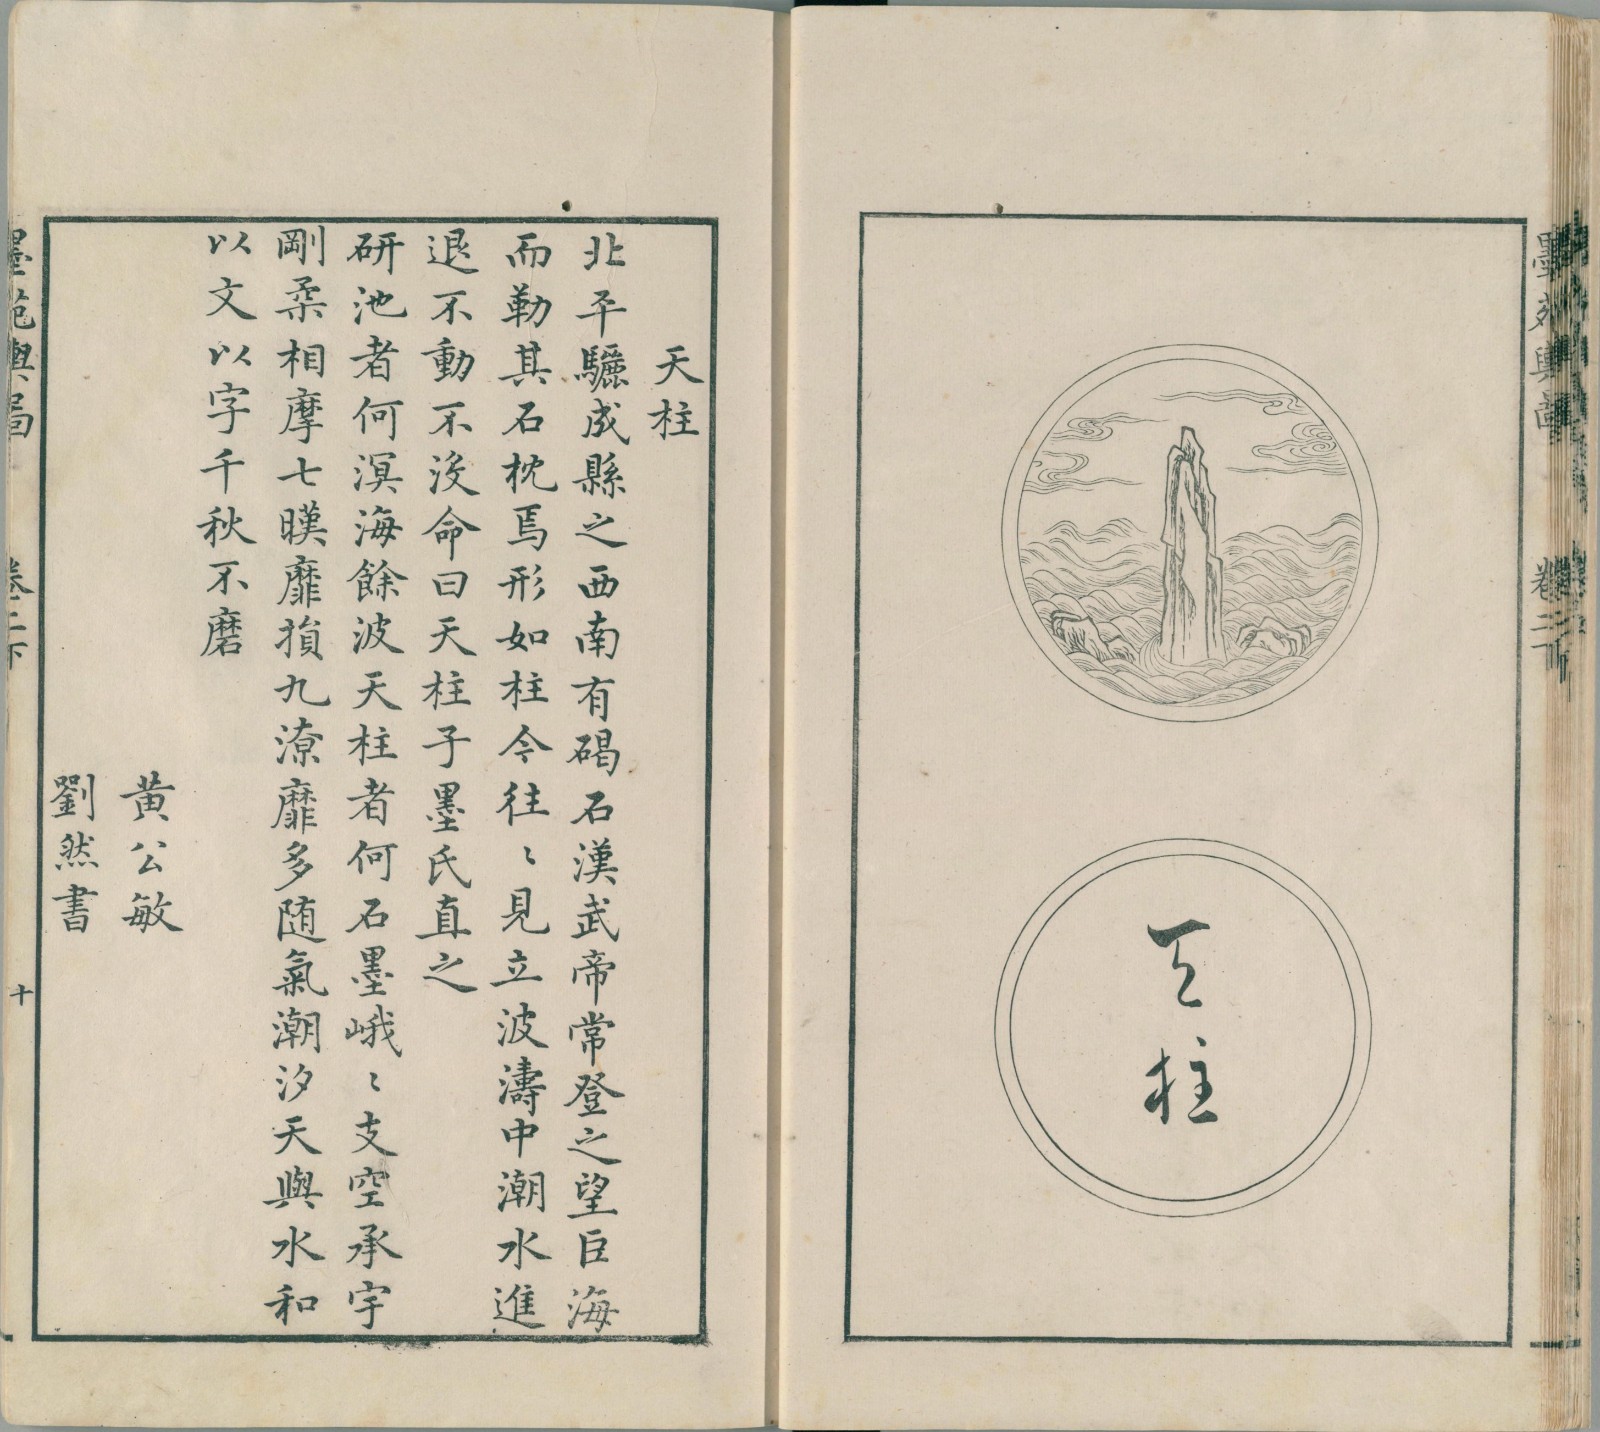 天柱
墨苑輿圖
卷二下
天柱
北平驪成縣之西南有碣石漢武帝常登之望巨海
而勒其石枕焉形如柱今往〻見立波濤中潮水進
退不動不沒命曰天柱子墨氏直之
研池者何溟海餘波天柱者何石墨峨〻支空承宇
剛柔相摩七暵靡損九潦靡多随氣潮汐天與水和
以文以字千秋不磨
黄公敏
劉然書
卷二下
十